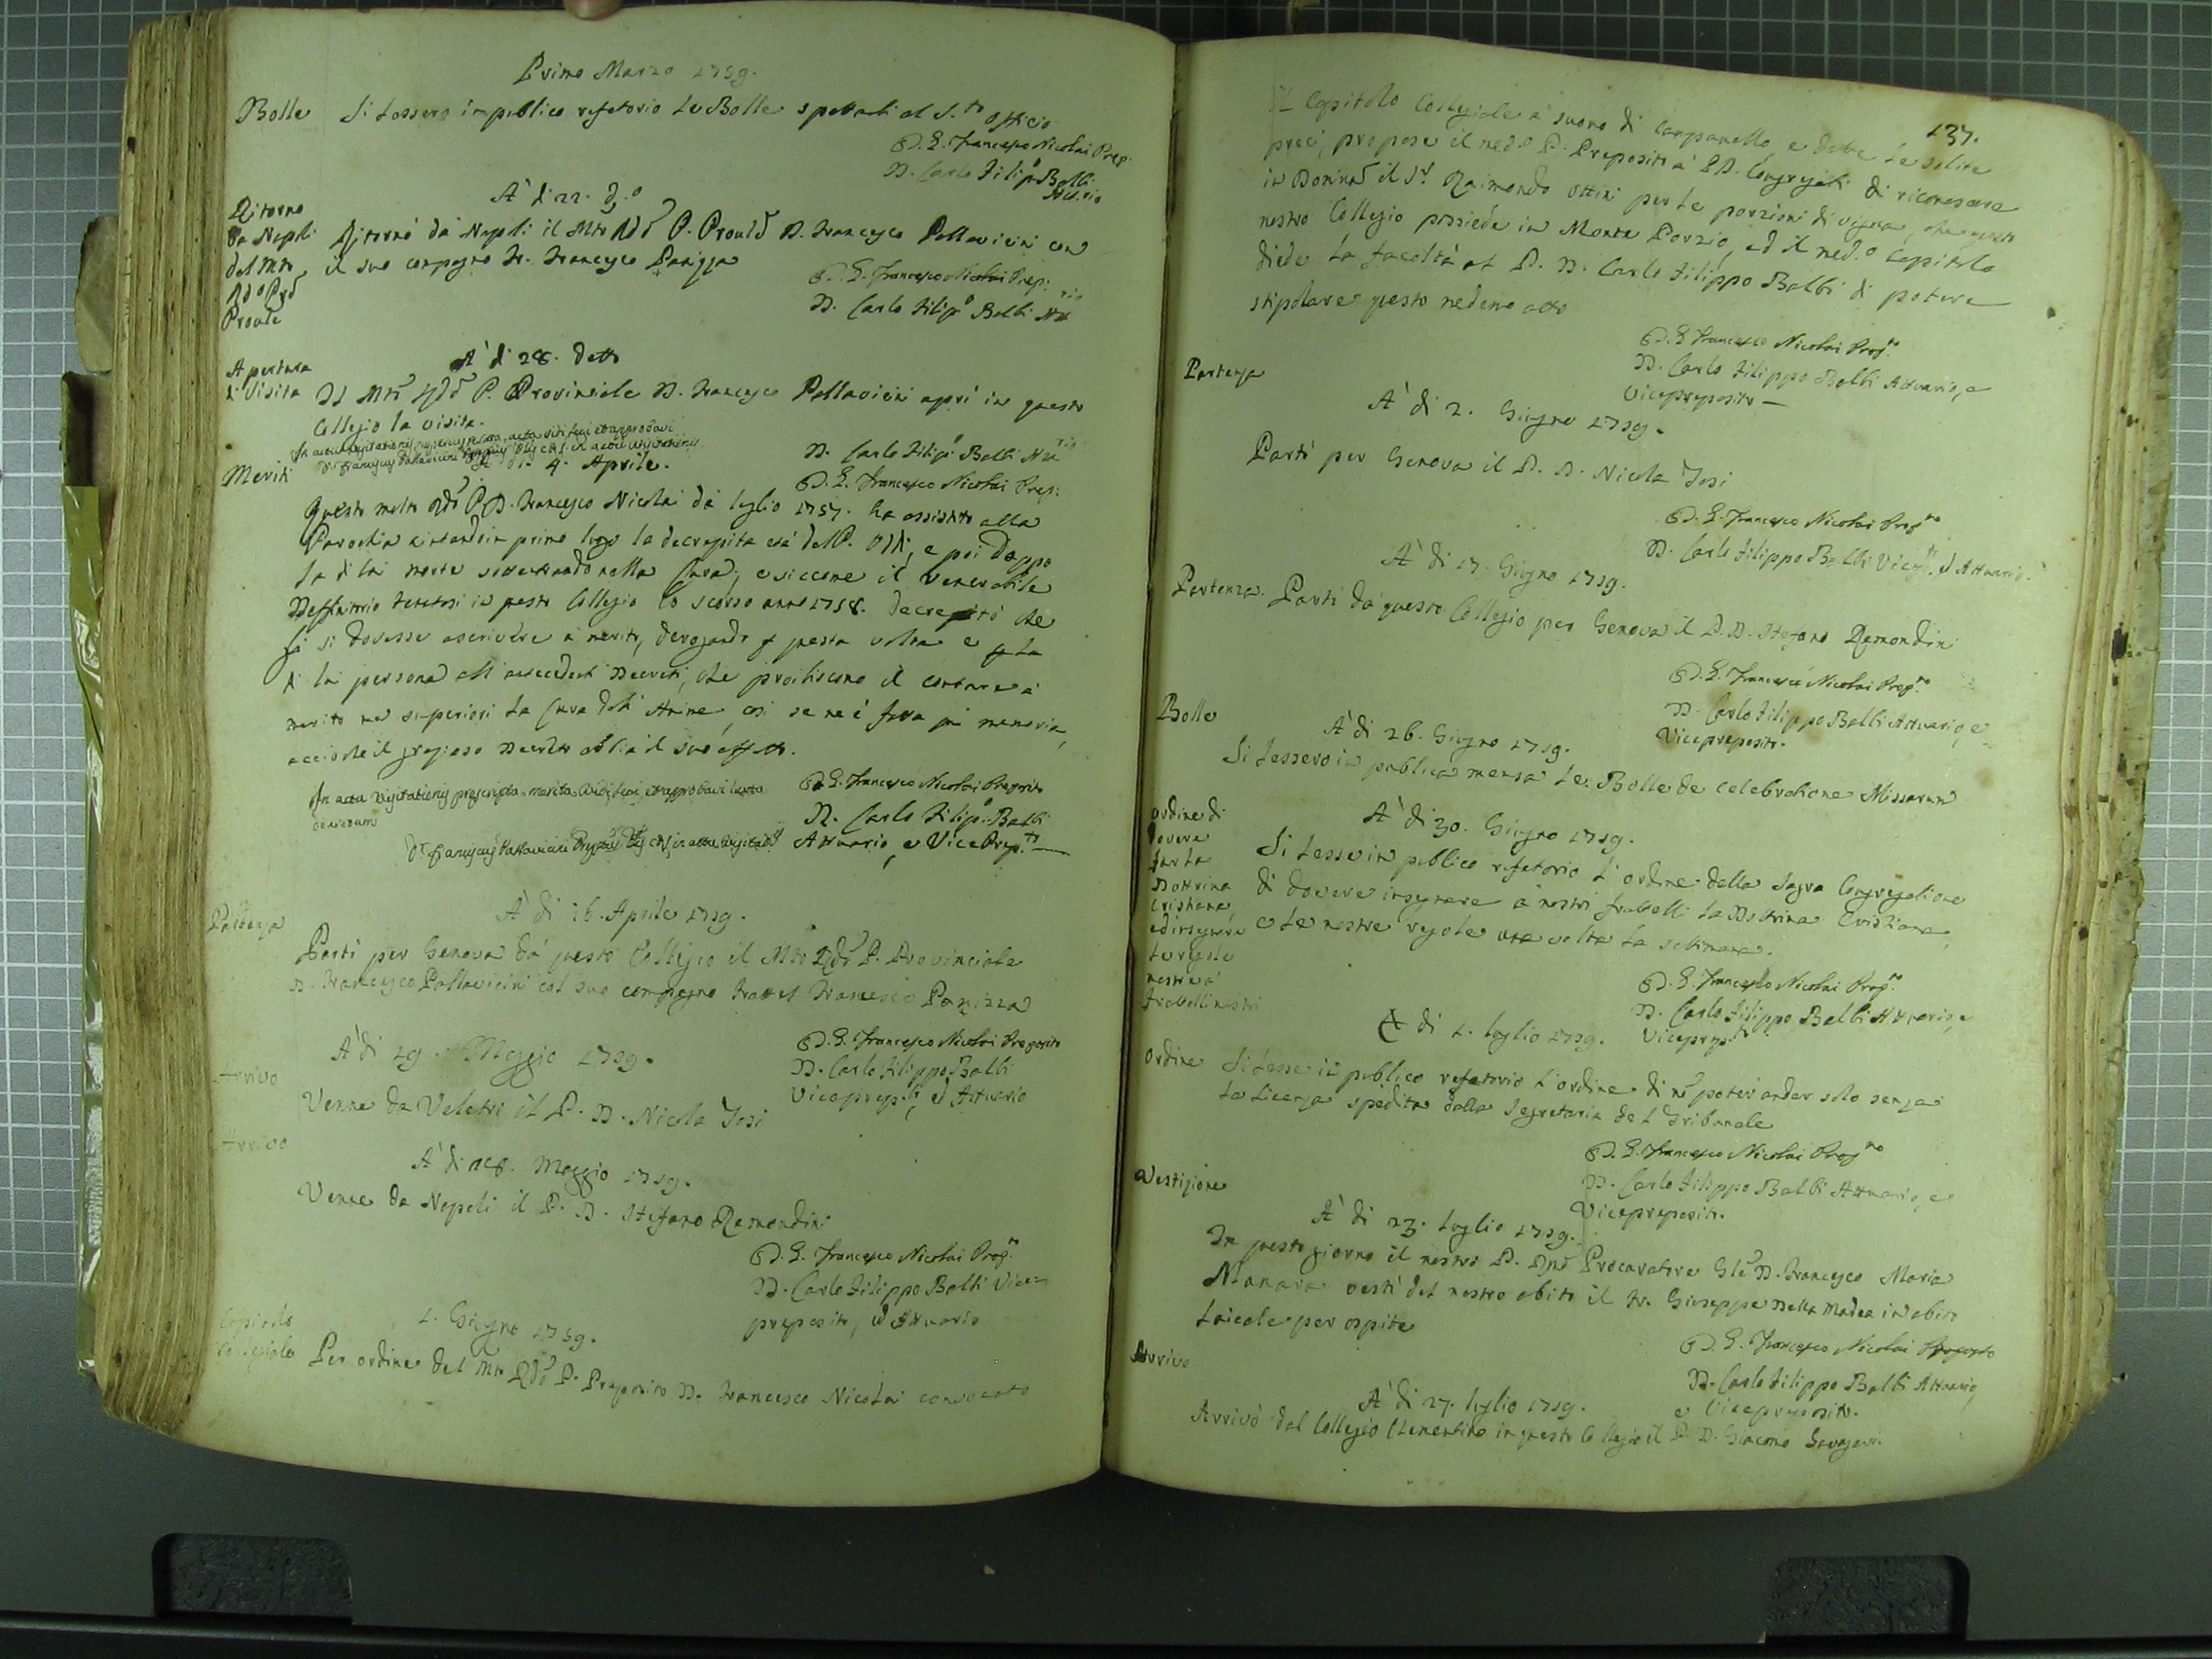 Primo Marzo 1759.
Bolle Si lessero in publico refetorio le Bolle spettanti al S.to Officio
D. G. Francesco Nicolai Prep.
D. Carlo Filip.o Balbi
Att.rio
A' di 22. d.o
Ritorno
da Napoli
del Mto
Rdo Pre
Prov.le
Ritornò da Napoli il Mto Rdo P. Prov.le D. Francesco Pallavicini con
il suo compagno Fr. Francesco Panizza
D. G. Francesco Nicolai Prep:
D. Carlo Filip.o Balbi Att.rio
A' di 28. detto
Apertura
di Visita
Il Mto Rdo P. Provinciale D. Francesco Pallavicini aprì in questo
Collegio la visita.
In actu Visitationis acta vidi legi et approbavi
D. Franciscus Pallavicini in actu Visitationis
D. Carlo Filip.o Balbi Att.rio
D. G. Francesco Nicolai Prep:
A' di 4. Aprile.
Meriti
Questo molto Rdo P. D. Francesco Nicolai da luglio 1757. ha assistito alla
Parochia in primo luogo la decrepita età del P. Odi, e poi doppo
la di lui morte nella Cura; e siccome il Venerabile
Deffinitorio tenutosi in questo Collegio lo scorso anno 1758. decretò che
si dovesse ascrivere a merito, derogando p questa volta e p la
di lui persona alli antecedenti Decreti, che proibiscono il contare a
merito ne superiori la Cura dell' Anime, così se ne è fatta qui memoria,
acciò che il grazioso Decreto abbia il suo effetto.
In actu Visitationis merita vidi, legi, et approbavi iuxta
decretum
D. Franciscus Pallavicini in actu Visitationis
D. G. Francesco Nicolai Preposito
D. Carlo Filip.o Balbi
Attuario, e Vice Prep.to
A' di 16. Aprile 1759.
Partenza
Partì per Genova da questo Collegio il Mto Rdo P. Provinciale
D. Francesco Pallavicini col suo compagno Fratel Francesco Panizza
D. G. Francesco Nicolai Preposito
D. Carlo Filippo Balbi
Viceprep.to, ed Attuario
A' di 19. Maggio 1759.
Arrivo
Venne da Veletri il P. D. Nicola Tosi
Arrivo
A' di 28. Maggio 1759.
Venne da Napoli il P. D. Stefano Remondini
D. G. Francesco Nicolai Prep.to
D. Carlo Filippo Balbi Vice-
preposito, ed Attuario
1. Giugno 1759.
Capitolo
Collegiale
Per ordine del Mto Rdo P. Preposito D. Francesco Nicolai convocato
137.
il Capitolo Collegiale a suono di Campanello e dette le solite
preci, propose il med.o P. Preposito a' PP. Congregati di riconoscere
in Domin il S.r Raimondo Ottini per le porzioni di vigna, che questo
nostro Collegio possiede in Monte Porzio, ed il med.o Capitolo
diede la facoltà al P. D. Carlo Filippo Balbi di potere
stipolare questo medemo atto
D. G. Francesco Nicolai Prep.to
D. Carlo Filippo Balbi Attuario, e
Vicepreposito
Partenza
A' di 2. Giugno 1759.
Partì per Genova il P. D. Nicola Tosi
D. G. Francesco Nicolai Prep.to
D. Carlo Filippo Balbi Vicep.to ed Attuario.
A' di 17. Giugno 1759.
Partenza. Partì da questo Collegio per Genova il P. D. Stefano Remondini
D. G. Francesco Nicolai Prep.to
D. Carlo Filippo Balbi Attuario, e
Vicepreposito.
Bolle
A' di 26. Giugno 1759.
Si lessero in publica mensa le Bolle de celebratione Missarum
A' di 30. Giugno 1759.
Ordine di
dovere
far la
Dottrina
Cristiana
ed insegnare
le regole
nostre a
fratelli nostri
Si lesse in publico refetorio l' ordine della Sagra Congregatione
di dovere insegnare a nostri fratelli la Dottrina Cristiana,
e le nostre regole una volta la settimana.
D. G. Francesco Nicolai Prep.to
D. Carlo Filippo Balbi Attuario, e
Viceprep.to
A' di 1. luglio 1759.
Ordine Si lesse in publico refetorio l' ordine di non poter andar solo senza
la licenza spedita dalla Segretaria del Tribunale
D. G. Francesco Nicolai Prep.to
D. Carlo Filippo Balbi Attuario, e
Vicepreposito.
Vestizione
A' di 23. luglio 1759.
In questo giorno il nostro P. Rmo Procuratore Gle D. Francesco Maria
Manara vestì del nostro abito il Fr. Giuseppe Della Madea in abito
laicale per ospite
D. G. Francesco Nicolai Preposito
D. Carlo Filippo Balbi Attuario,
e Vicepreposito.
Arrivo
A' di 27. luglio 1759.
Arrivò dal Collegio Clementino in questo Collegio il P. D. Giacomo